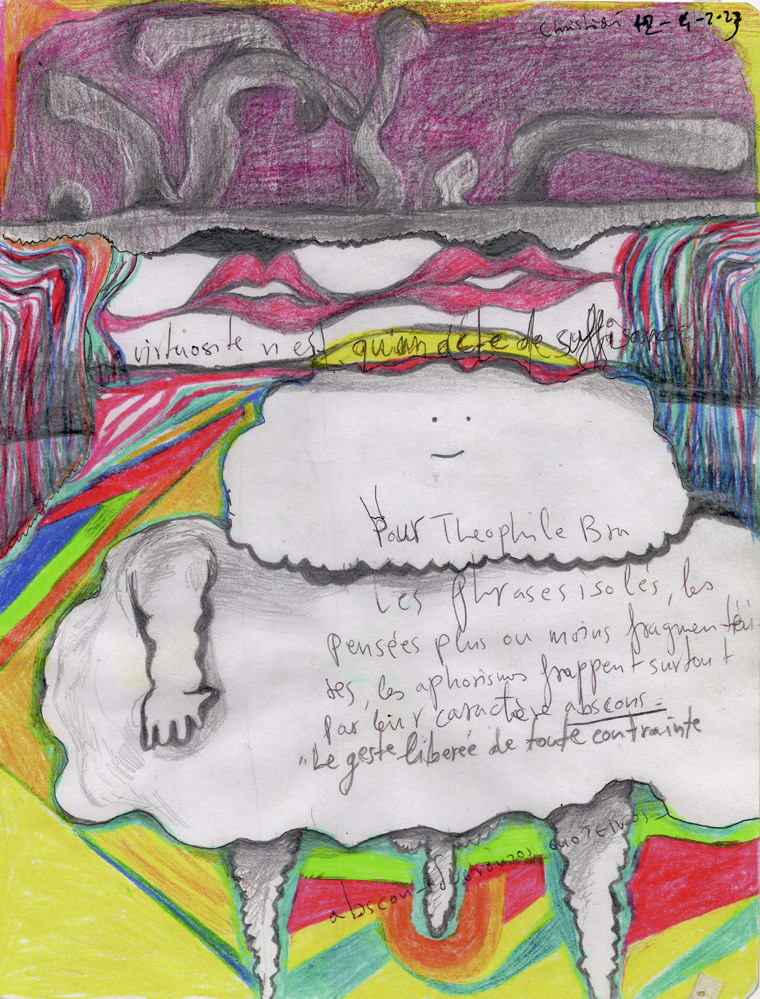 Christian 12-4-2023
virtuosité n'est qu'un de te de suffisance
Pour Théophile Bra
Les phrases isolés, les
pensées plus ou moins fragmentai-
res, les aphorismes frappent surtout
par leur caractère abscons =
"Le geste liberée de toute contrainte
abscon